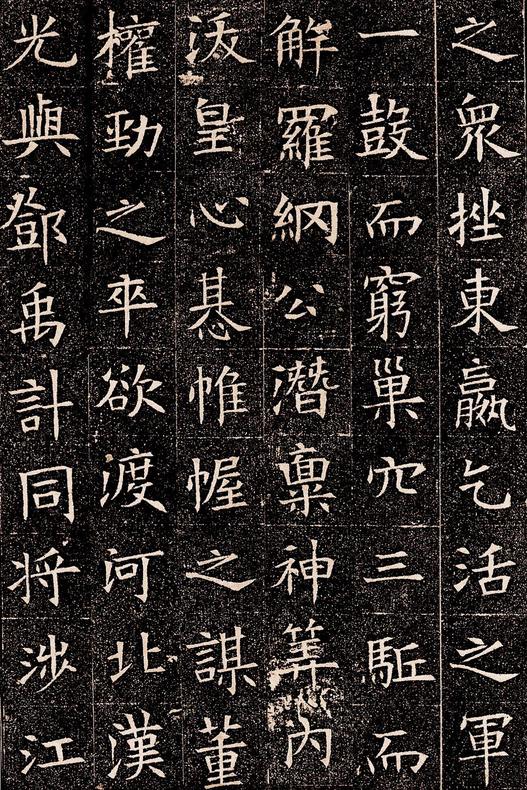 之衆挫東嬴乞活之軍
一鼓而窮巢穴三駈而
解羅網公潛稟神筭内
沃皇心惎帷幄之謀董
權勁之卒欲渡河北漢
光與鄧禹計同将涉江